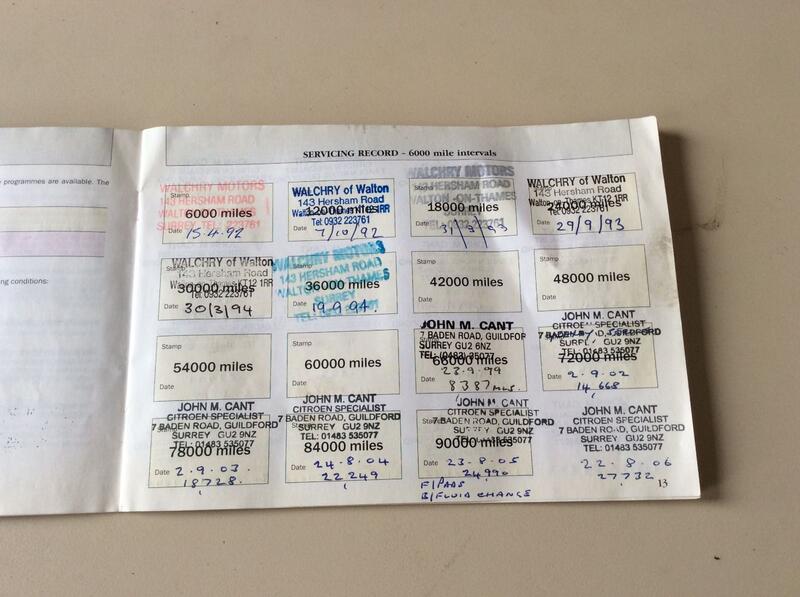 programmes are available. The
ng conditions:
SERVICING RECORD - 6000 mile intervals
WALCHRY MOTORS
143 HERSHAM ROAD
6000 miles
SURREY TEL: 223761
Date 15.4.92
WALCHRY of Walton
143 Hersham Road
12000 miles
Walton-on-Thames KT12 1RR
Tel 0932 223761
Date 7/10/92
WALCHRY MOTORS
HERSHAM ROAD
18000 miles
WALTON-ON-THAMES
Date
WALCHRY of Walton
143 Hersham Road
24000 miles
Walton-on-Thames KT12 1RR
Tel 0932 223761
Date 29/9/93
WALCHRY of Walton
143 Hersham Road
30000 miles
KT12 1RR
Tel 0932 223761
Date 30/3/94
WALCHRY MOTORS
143 HERSHAM ROAD
36000 miles
WALTON THAMES
SURREY
Date 19.9.94.
Stamp
42000 miles
Date
Stamp
48000 miles
Date
Stamp
54000 miles
Date
Stamp
60000 miles
Date
JOHN M. CANT
7 BADEN ROAD, GUILDFOR
SURREY GU2 6NZ
TEL: (0483) 35077
66000 miles
23.9.99
8387 MLS.
JOHN M. CANT
CITROEN SPECIALIST
7 BADEN
GU2 9NZ
TEL: 01483 535077
72000 miles
Date 2.9.02
14,668
JOHN M. CANT
CITROEN SPECIALIST
7 BADEN ROAD, GUILDFORD
SURREY GU2 9NZ
TEL: 01483 535077
78000 miles
Date 2.9.03.
18728.
JOHN M. CANT
CITROEN SPECIALIST
7 BADEN ROAD, GUILDFORD
SURREY GU2 9NZ
TEL: 01483 535077
84000 miles
Date 24.8.04
22249
JOHN M. CANT
CITROEN SPECIALIST
7 BADEN ROAD, GUILDFORD
SURREY GU2 9NZ
90000 miles
Date 23.8.05
24990
F/PADS
B/FLUID CHANGE
JOHN M. CANT
CITROEN SPECIALIST
7 BADEN ROAD, GUILDFORD
SURREY GU2 9NZ
TEL: 01483 535077
22.8.06
27732
13